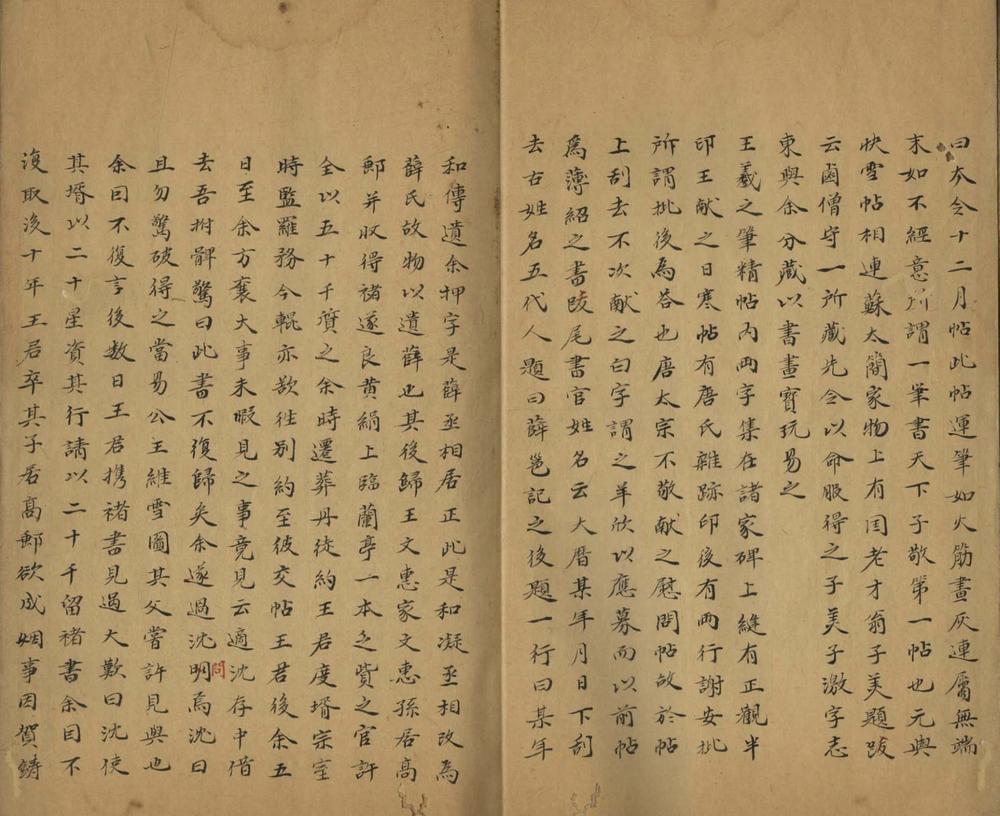 曰大令十二月帖此帖運筆如火筋畫灰連屬無端
末如不經意所謂一筆書天下子敬第一帖也元與
快雪帖相連蘇太簡家物上有囯老才翁子美題跋
云鹵僧守一所藏先令以命服得之子美子激字志
東與余分藏以書畫寶玩易之
王羲之筆精帖內两字集在諸家碑上縫有正觀半
印王献之日寒帖有唐氏雜跡印後有两行謝安批
所謂批後為荅也唐太宗不敬献之慰問帖故於帖
上刮去不次献之白字謂之羊欣以應募而以前帖
為薄紹之書跋尾書官姓名云大曆某年月日下刮
去古姓名五代人題曰薛邕記之後題一行曰某年
和傳遺余押字是薛丞相居正此是和凝丞相改為
薛氏故物以遺薛也其後歸王文惠家文惠孫居高
郵并収得禇遂良黄絹上臨蘭亭一本乏貲之官許
余以五十千質之余時遷葬丹徒約王君度壻宗室
時監羅務令輥亦欲徃别約至彼交帖王君後余五
日至余方襄大事未暇見之事竟見云適沈存中借
去吾拊髀驚曰此書不復歸矣余遂過沈問明焉沈曰
且勿驚破得之當易公王維雪圖其父嘗許見與也
余曰不復言後数日王君携禇書見過大歎曰沈使
其壻以二十星資其行請以二十千留禇書余曰不
復取後十年王君卒其子居髙郵欲成姻事因賀鑄